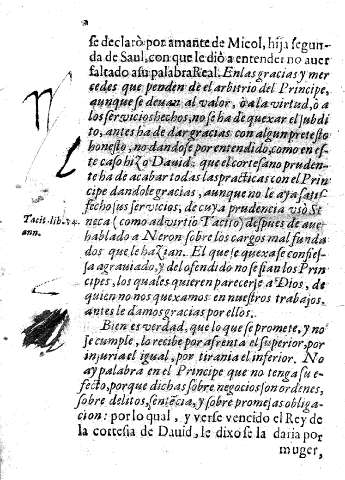 se declarò por amante de Micol, hija segun-
da de Saul, con que le diò a entender no auer
faltado a su palabra Real. En las gracias y mer-
cedes que penden de el arbitrio del Principe,
aunque se deuan al valor, ò a la virtud, ò a
los seruicios hechos, no se ha de quexar el subdi-
to, antes ha de dar gracias con algun pretesto
honesto, no dandose por entendido, como en es-
te caso hizo Dauid: que el cortesano pruden-
te ha de acabar todas las practicas con el Prin
cipe dandole gracias, aunque no le aya satis-
fecho sus seruicios, de cuya prudencia vsò Se
Tacit. lib. 14.
ann.
neca (como advirtio Tacito) despues de auer
hablado a Neron sobre los cargos mal funda
dos que le hazian. El que se quexa se confies-
sa agrauiado, y del ofendido no se fian los Prin
cipes, los quales quieren parecerse a Dios, de
quien no nos quexamos en nuestros trabajos,
antes le damos gracias por ellos.
Bien es verdad, que lo que se promete, y no
se cumple, lo recibe por afrenta el superior, por
injuria el igual, por tirania el inferior. No
ay palabra en el Principe que no tenga su e-
fecto, porque dichas sobre negocios son ordenes,
sobre delitos, sentẽcia, y sobre promesas obliga-
cion: por lo qual, y verse vencido el Rey de
la cortesia de Dauid, le dixo se la daria por
muger,